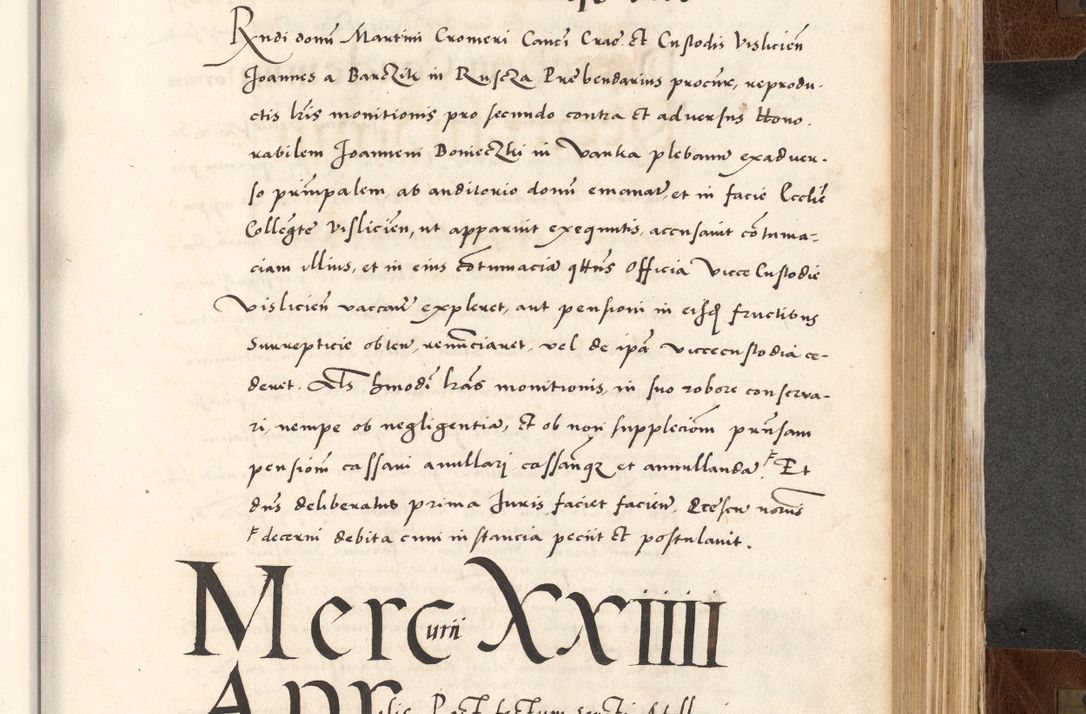 Rndi domi Martini Cromeri Canci Crac̄ Et Custodis Vislicien̄
Joannes a Barczik in Ruscza Prebendarius procūr, reprodu-
ctis lris monitionis pro secundo contra Et adversus Hono-
rabilem Joannem Donieczki in Vanka plebanū exadver-
so prīncipalem, ab auditorio domi emanat, et in facie Eccliē
Collegte Vislicien̄, ut apparuit exequutis, accusavit cōtuma-
ciam illius, et in eius cōtumaciā qtns Officia Vicce Custodie
Vislicien̄ vaccare expleret, aut pensioni in eisd fructibus
Surrepticie obten, renunciaret, vel de ipā viccecustodia ce-
deret. Als hmodi lrās monitionis, in suo robore conserva-
ri, nempe ob negligentiā, Et ob non suppleciom prnsam
pensiom cassari anullari cassanqz et annullandā. Et
dns deliberatus prima Juris faciet facien̄.
decerni debita cum instancia peciit Et postulavit.
Mercurii XXIIII
Aprilis Post festum sancti